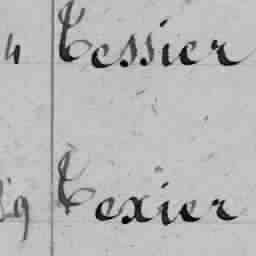 4 Tessier
Texier